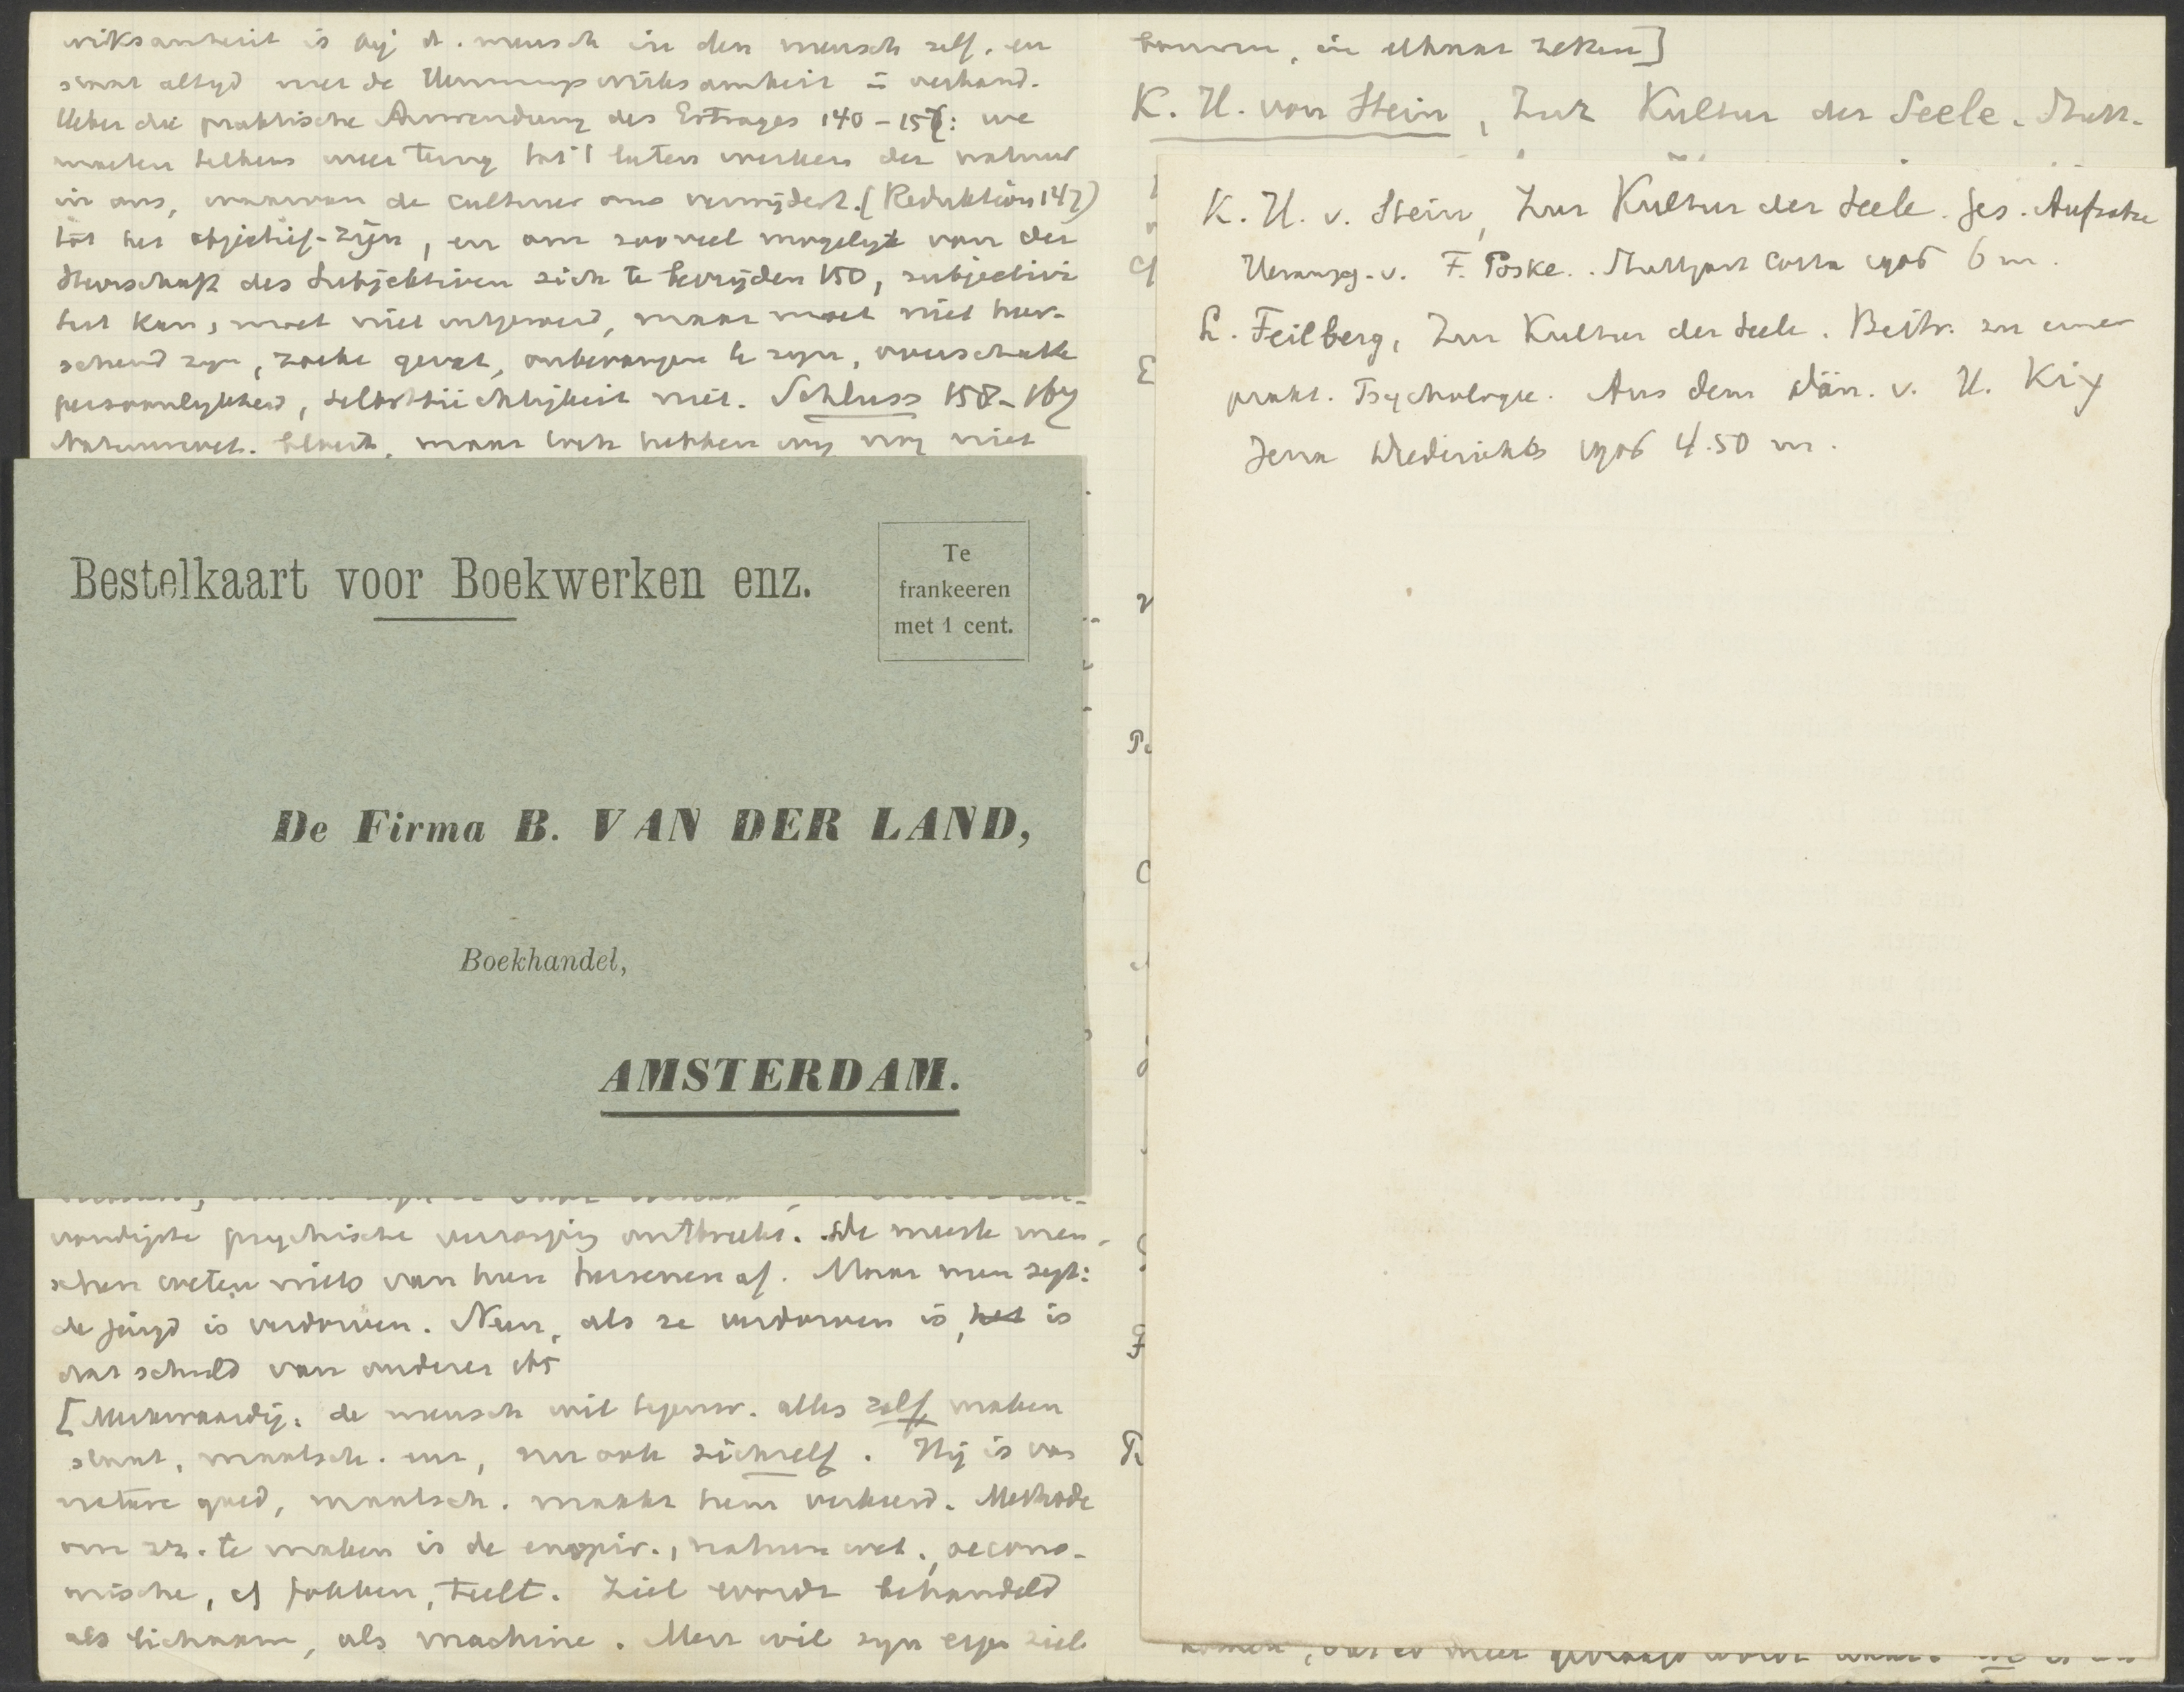 wirksamkeit is bij d. mensch in den mensch zelf, en
altyd met de Hemmungswirksamkeit in verband.
Ueber die praktische Anwendung des Ertrages 140 – 157: we
moeten telkens weer terug tot 't laten werken der natuur
in ons, waarvan de cultuur ons verwijdert. (Reduktion 147)
tot het objectief-zijn, en om zooveel mogelijk van der
Herrschaft des Subjektiven zich te bevrijden 150, subjectivi
teit kan, moet niet uitgeroeid, maar moet niet heer-
schend zyn, zoeke gevat, onbevangen te zyn, overschatte
persoonlykheid, selbstsüchtigkeit niet. Schluss 158–167
Natuurwet. maar hebben wy nog niet
Bestelkaart voor Boekwerken enz.
Te
frankeeren
met 1 cent.
De Firma B. VAN DER LAND,
Boekhandel,
AMSTERDAM.
psychische ontbreekt. De meeste men-
schen weten niets van hun hersenen af. Maar men zegt:
de jeugd is verdorven. Neen, als ze verdorven is, het is
dat schuld van anderen etc
[Merkwaardig: de mensch wil tegenw. alles zelf maken
staat, maatsch. enz, nu ook zichzelf. Hij is van
nature goed, maatsch. maakt hem verkeerd. Methode
om zz. te maken is de empir., natuurwet., oecono-
mische, cf fokken, teelt. Ziel wordt behandeld
als lichaam, als machine. Men wil zyn eigen ziel
bouwen, in elkaar zetten]
K. H. von Stein, Zur Kultur der Seele. Stutt.
K. H. v. Stein, Zur Kultur der Seele. Ges. Aufsatze
Herausg. v. F. Poske. Stuttgart Cotta 1906 6 m.
L. Feilberg, Zur Kultur der Seele. Beitr. zu einer
prakt. Psychologie. Aus dem Dän. v. H. Kiy
Jena Diederichs 1906 4.50 m.